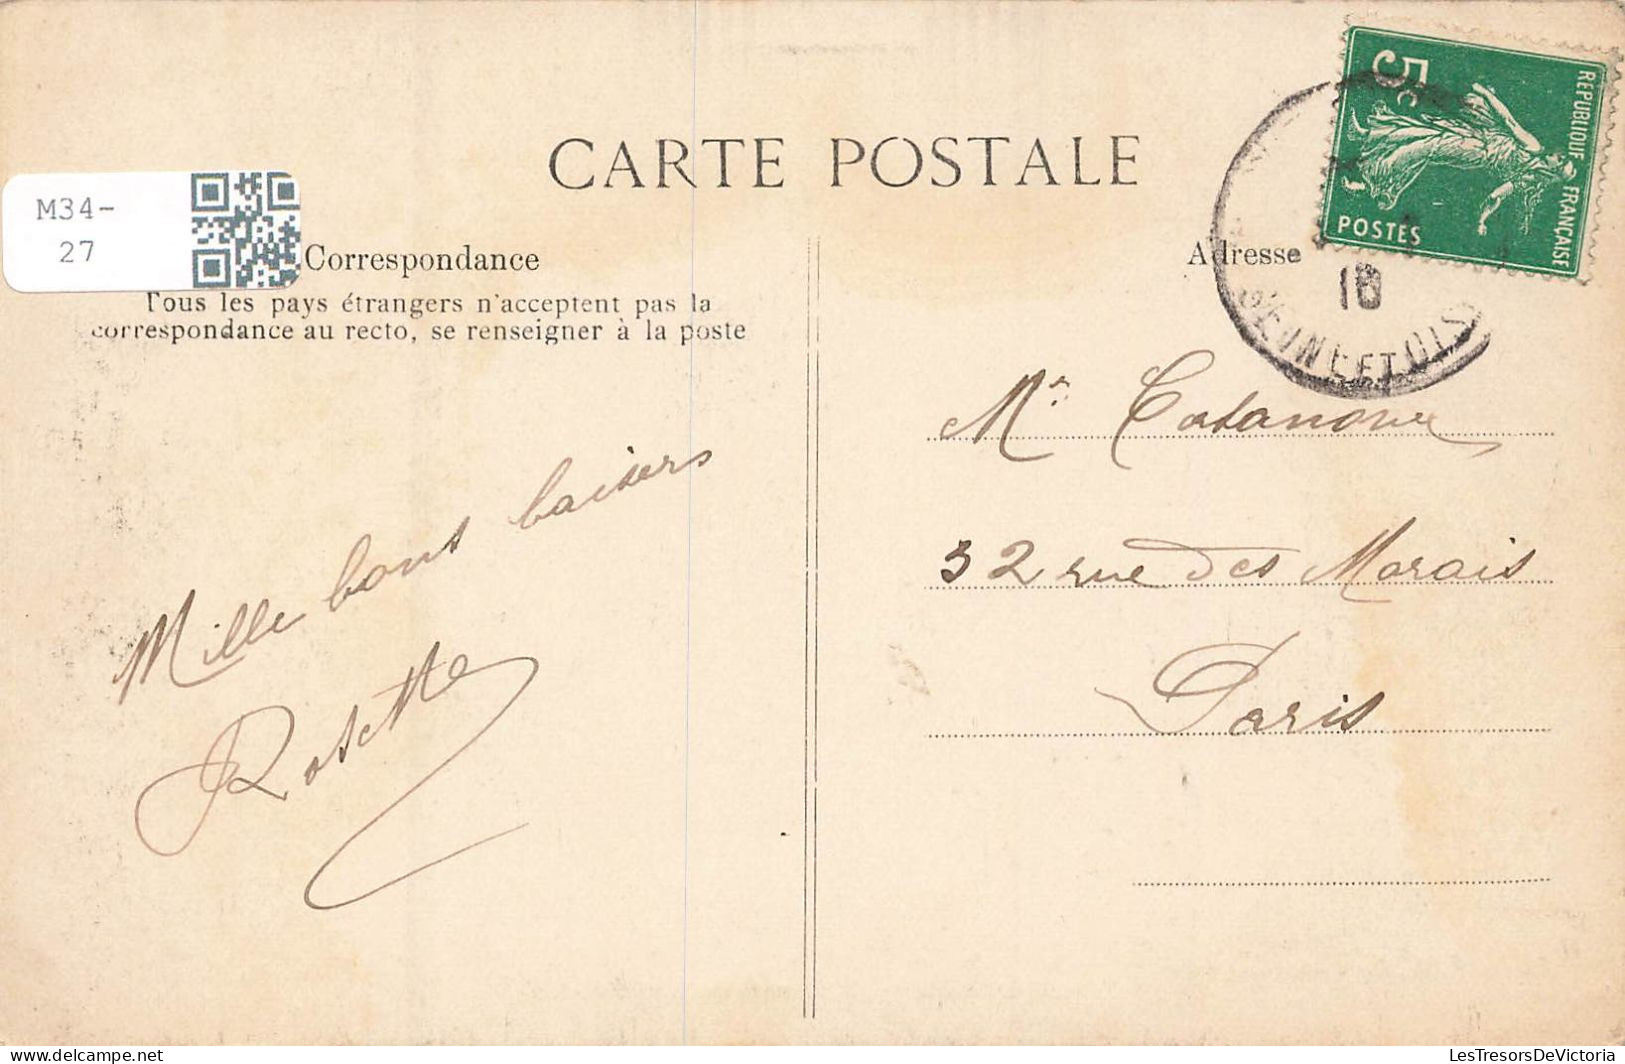 CARTE POSTALE
M34-
27
Correspondance
Tous les pays étrangers n'acceptent pas la
correspondance au recto, se renseigner à la poste
Mille bons baisers
Rosette
Adresse
5c
REPUBLIQUE FRANÇAISE
POSTES
10
SEINE ET OISE
Mr Casanova
32 rue des Marais
Paris
delcampe.net
LesTresorsDeVictoria